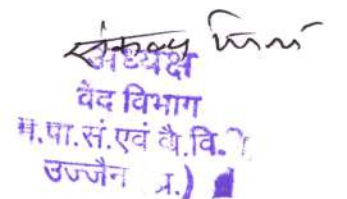 अध्यक्ष
वेद विभाग
म.पा.सं.एवं वै.वि.
उज्जैन  प्र.)